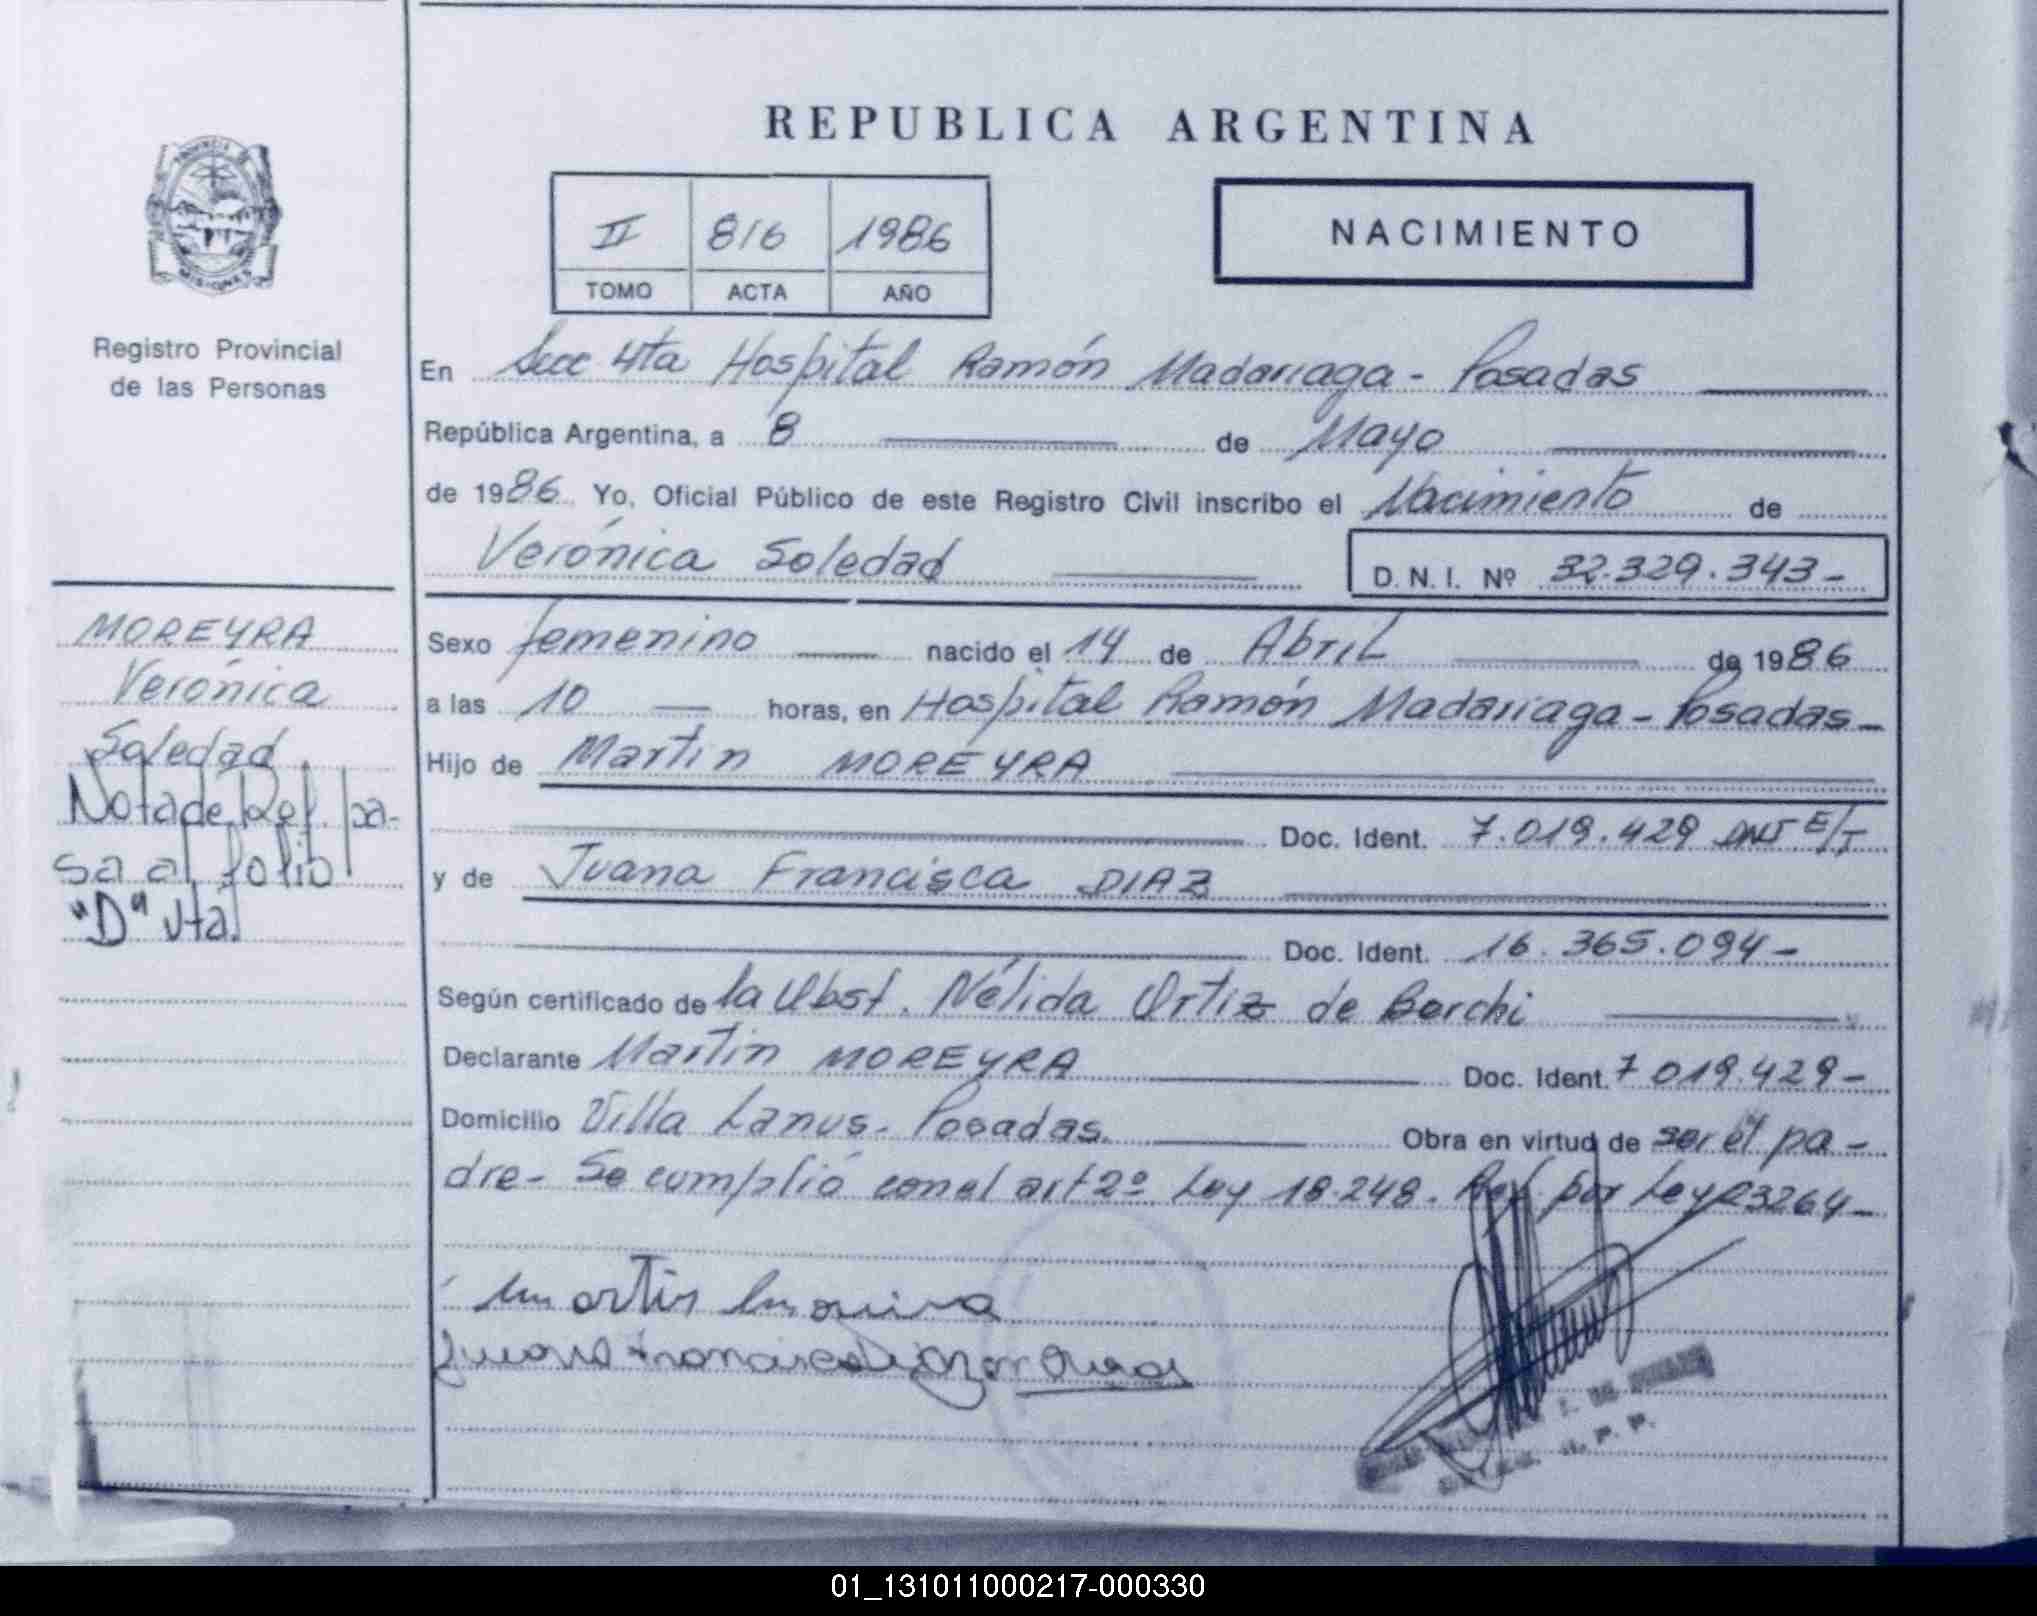 REPUBLICA ARGENTINA
II 816 1986
TOMO ACTA AÑO
NACIMIENTO
PROVINCIA DE
MISIONES
Registro Provincial
de las Personas
En Secc 4ta Hospital Ramón Madariaga - Posadas
República Argentina, a 8 de Mayo
de 1986. Yo, Oficial Público de este Registro Civil inscribo el Nacimiento de
Verónica Soledad D. N. I. Nº 32.329.343-
MOREYRA
Verónica
Soledad
Nota de Ref. pa-
sa al folio
"D" vta.
Sexo femenino nacido el 14 de Abril de 1986
a las 10 horas, en Hospital Ramón Madariaga - Posadas -
Hijo de Martin MOREYRA
Doc. Ident. 7.019.429 DNI E/T
y de Juana Francisca DIAZ
Doc. Ident. 16.365.094-
Según certificado de la Obst. Nélida Ortiz de Borchi
Declarante Martin MOREYRA Doc. Ident. 7 019.429-
Domicilio Villa Lanus - Posadas. Obra en virtud de ser el pa-
dre - Se cumplió con el art 2º Ley 18.248. Ref. por Ley 23264-
Juana Francisca
01_131011000217-000330